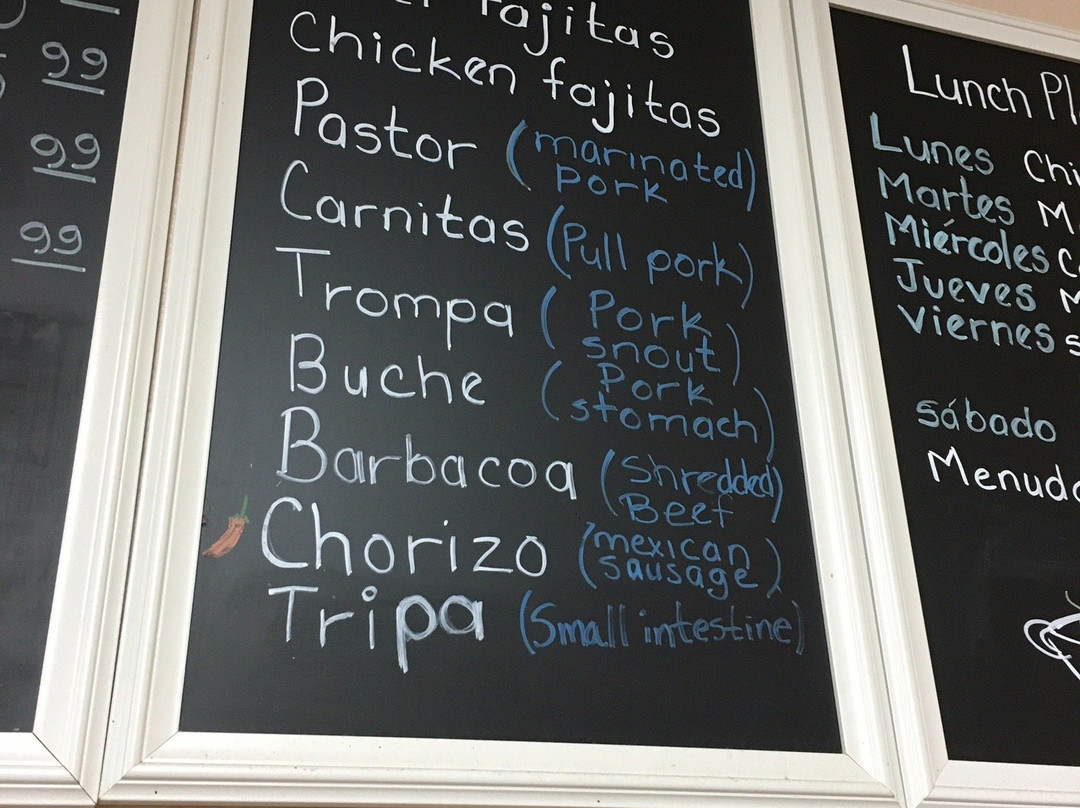 99
99
99
fajitas
Chicken fajitas
Pastor (marinated pork)
Carnitas (Pull pork)
Trompa (Pork snout)
Buche (Pork stomach)
Barbacoa (Shredded Beef)
Chorizo (mexican sausage)
Tripa (Small intestine)
Lunch
Lunes
Martes
Miércoles
Jueves
Viernes
Sábado